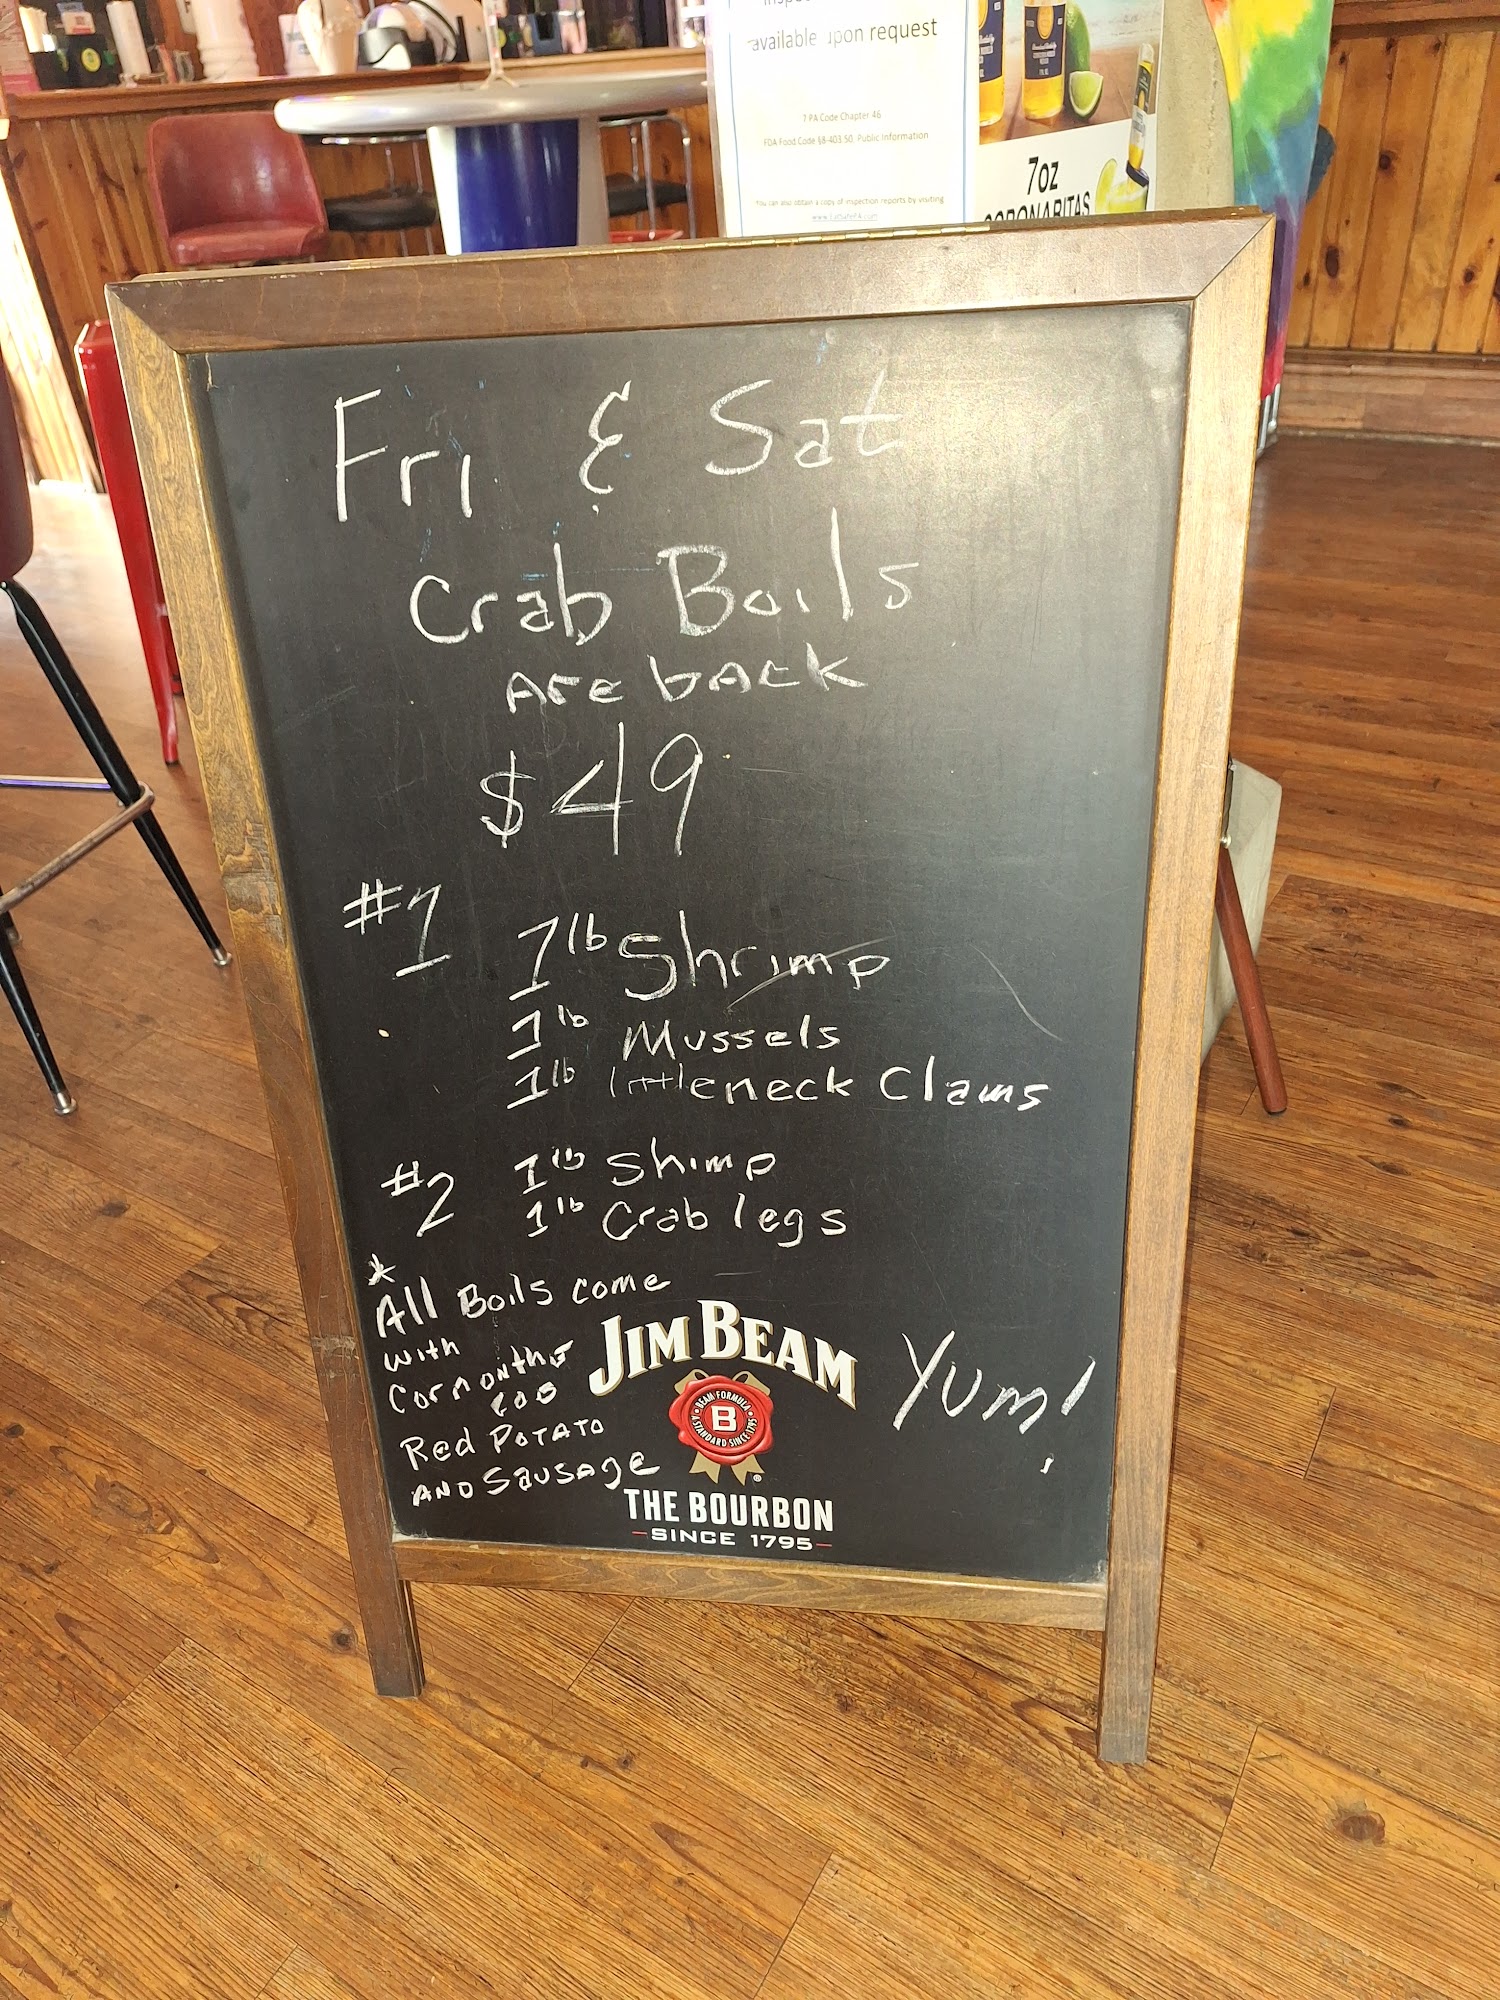 available upon request
7 PA Code Chapter 46
FDA Food Code §8-403.50: Public Information
You can also obtain a copy of inspection reports by visiting
www.EatSafePA.com
7oz
CORONARITAS
Fri & Sat
Crab Boils
Are back
$49
#1 1lb Shrimp
1lb Mussels
1lb littleneck Clams
#2 1lb Shimp
1lb Crab legs
*
All Boils come
with
Corn on the
COB
Red Potato
AND Sausage
JIM BEAM
BEAM FORMULA
B
A STANDARD SINCE 1795
THE BOURBON
SINCE 1795
Yum!